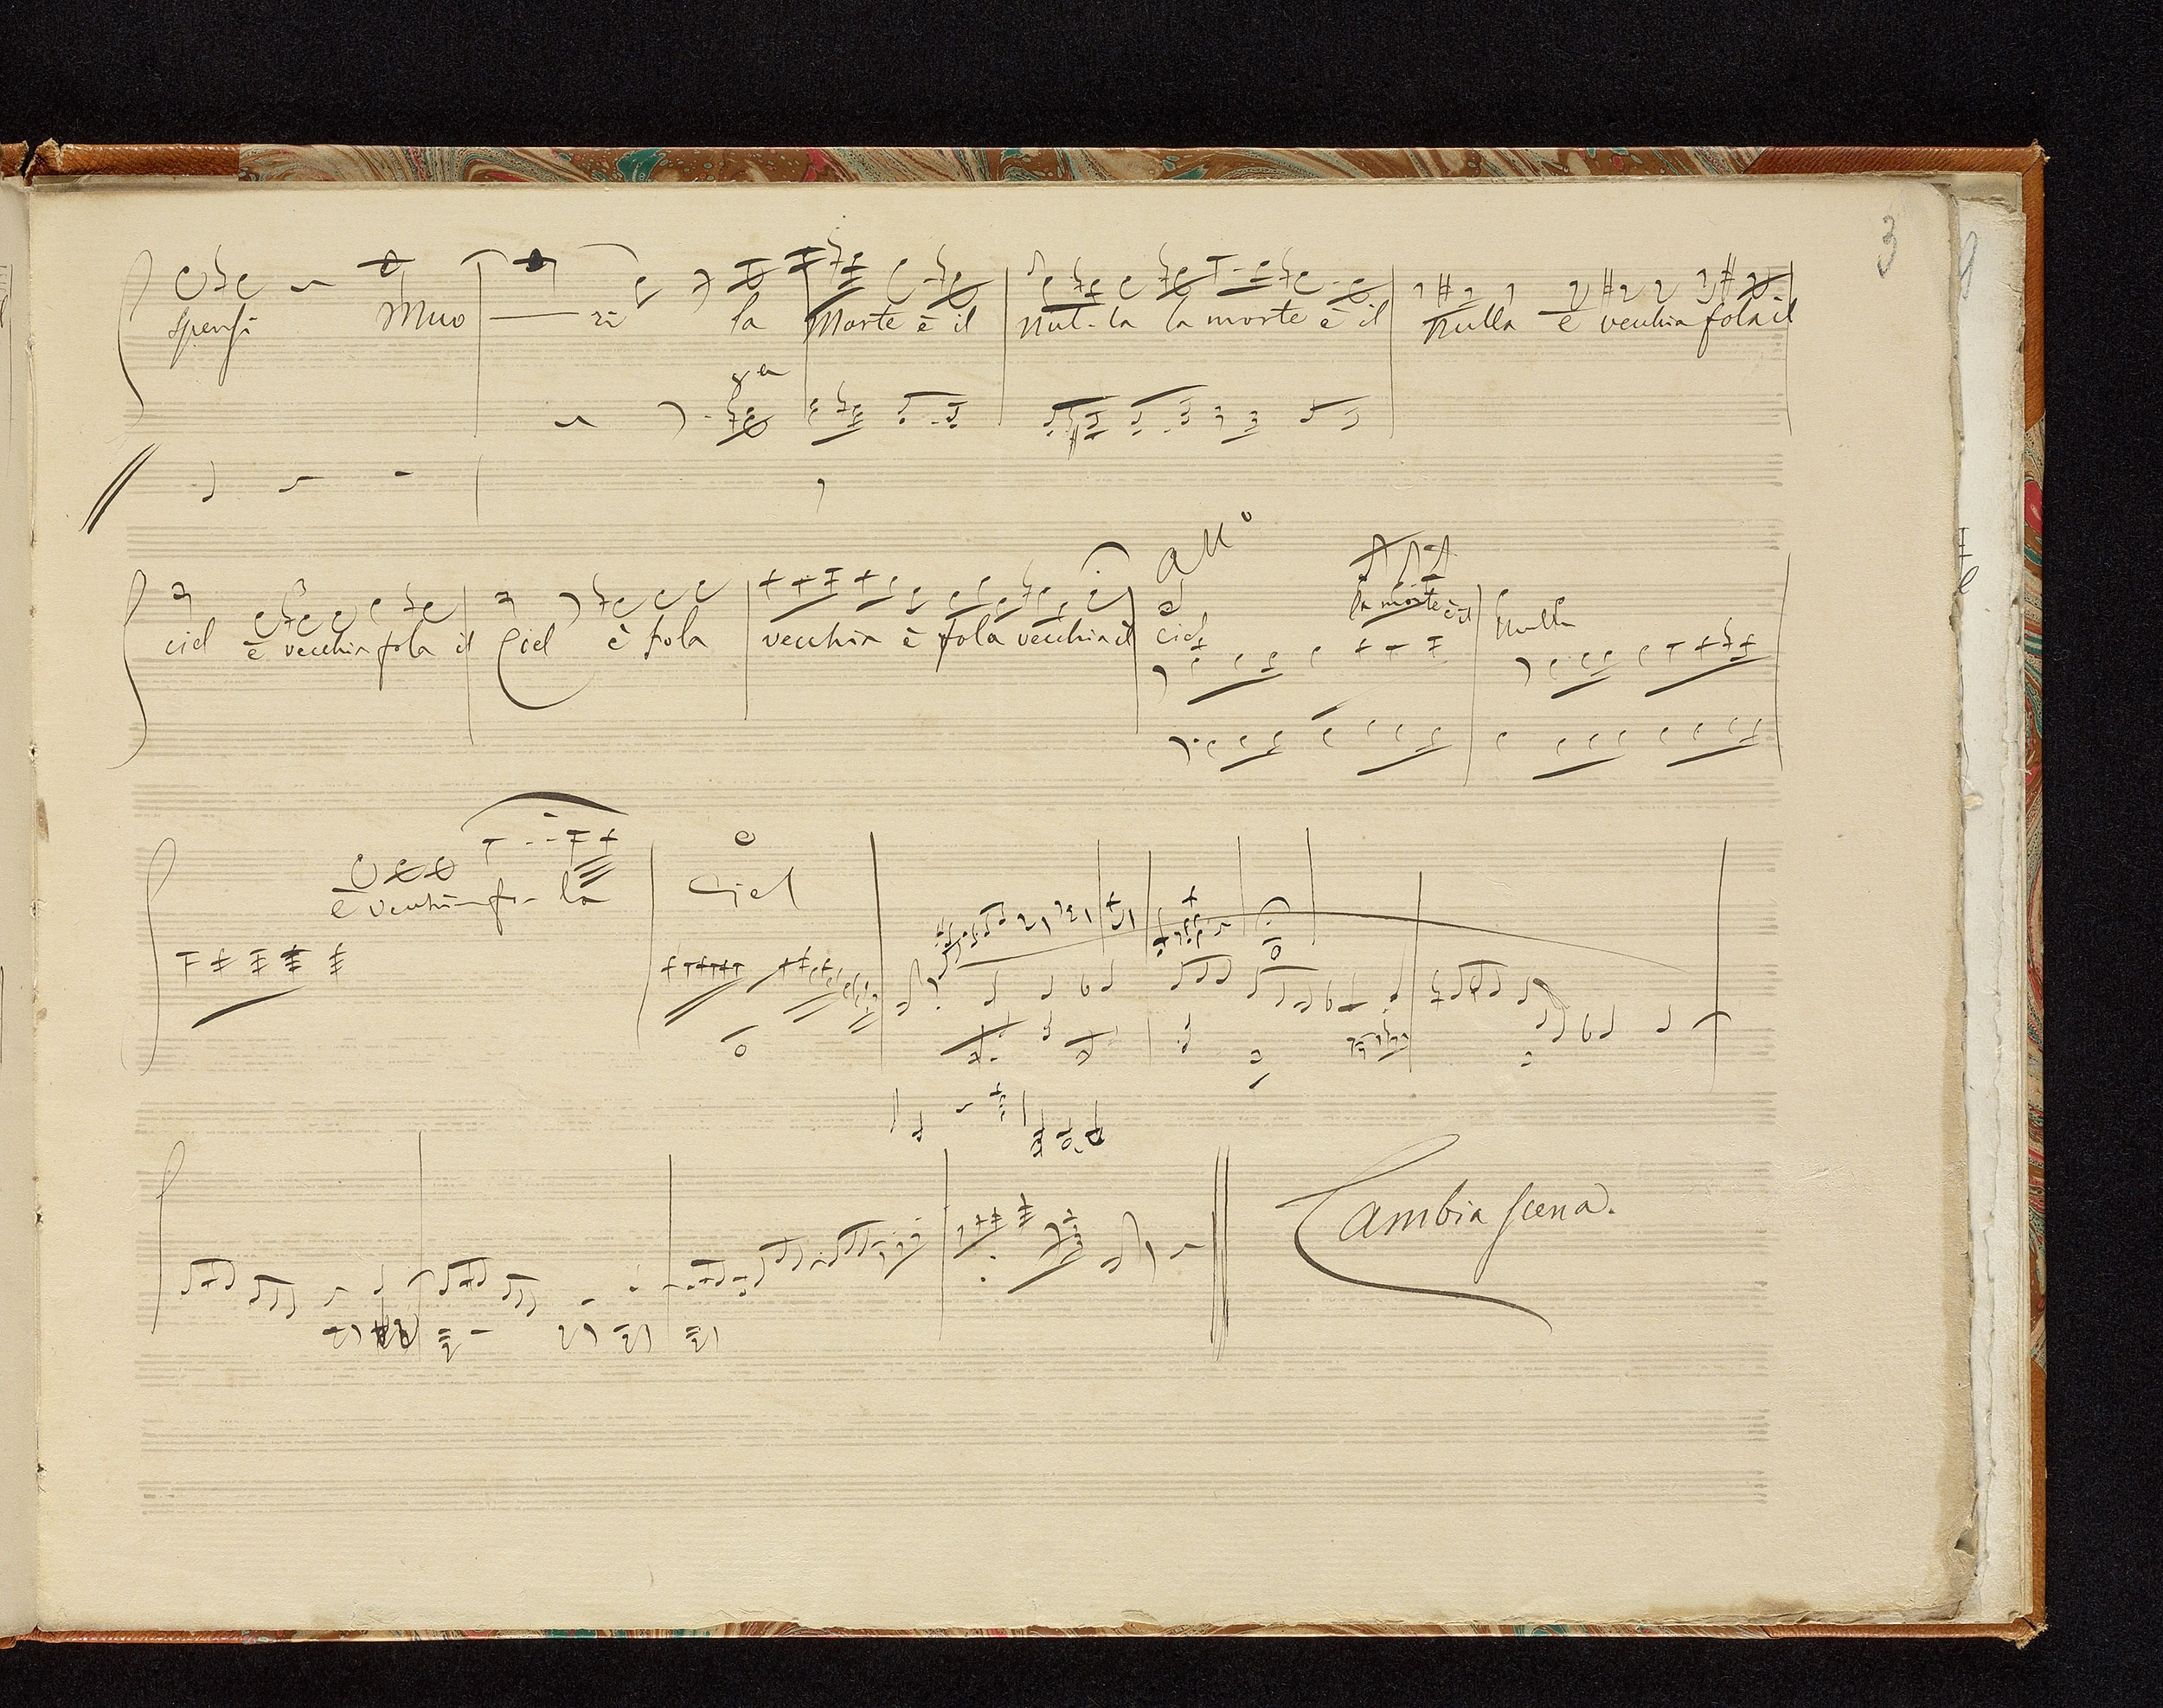 3
spersi Muo ri la Morte è il Nul-la la morte è il Nulla è vecchia fola il
8a
All°
la morte è il
ciel è vecchia fola il Ciel è fola vecchia è fola vecchia il ciel Nulla
è vecchia fo-la Ciel
Cambia Scena.